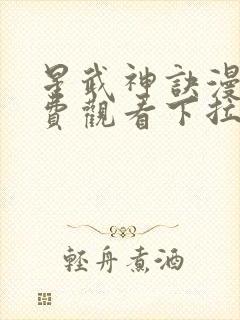 星武神訣漫
費觀看下拉
輕舟煮酒